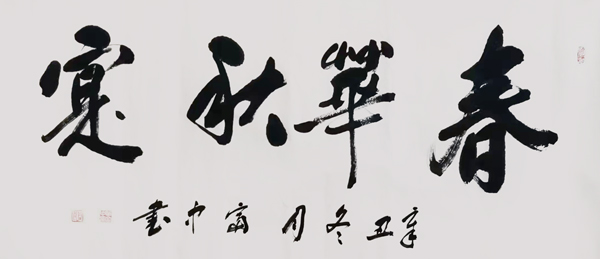 春華秋寔
辛丑冬月富中書